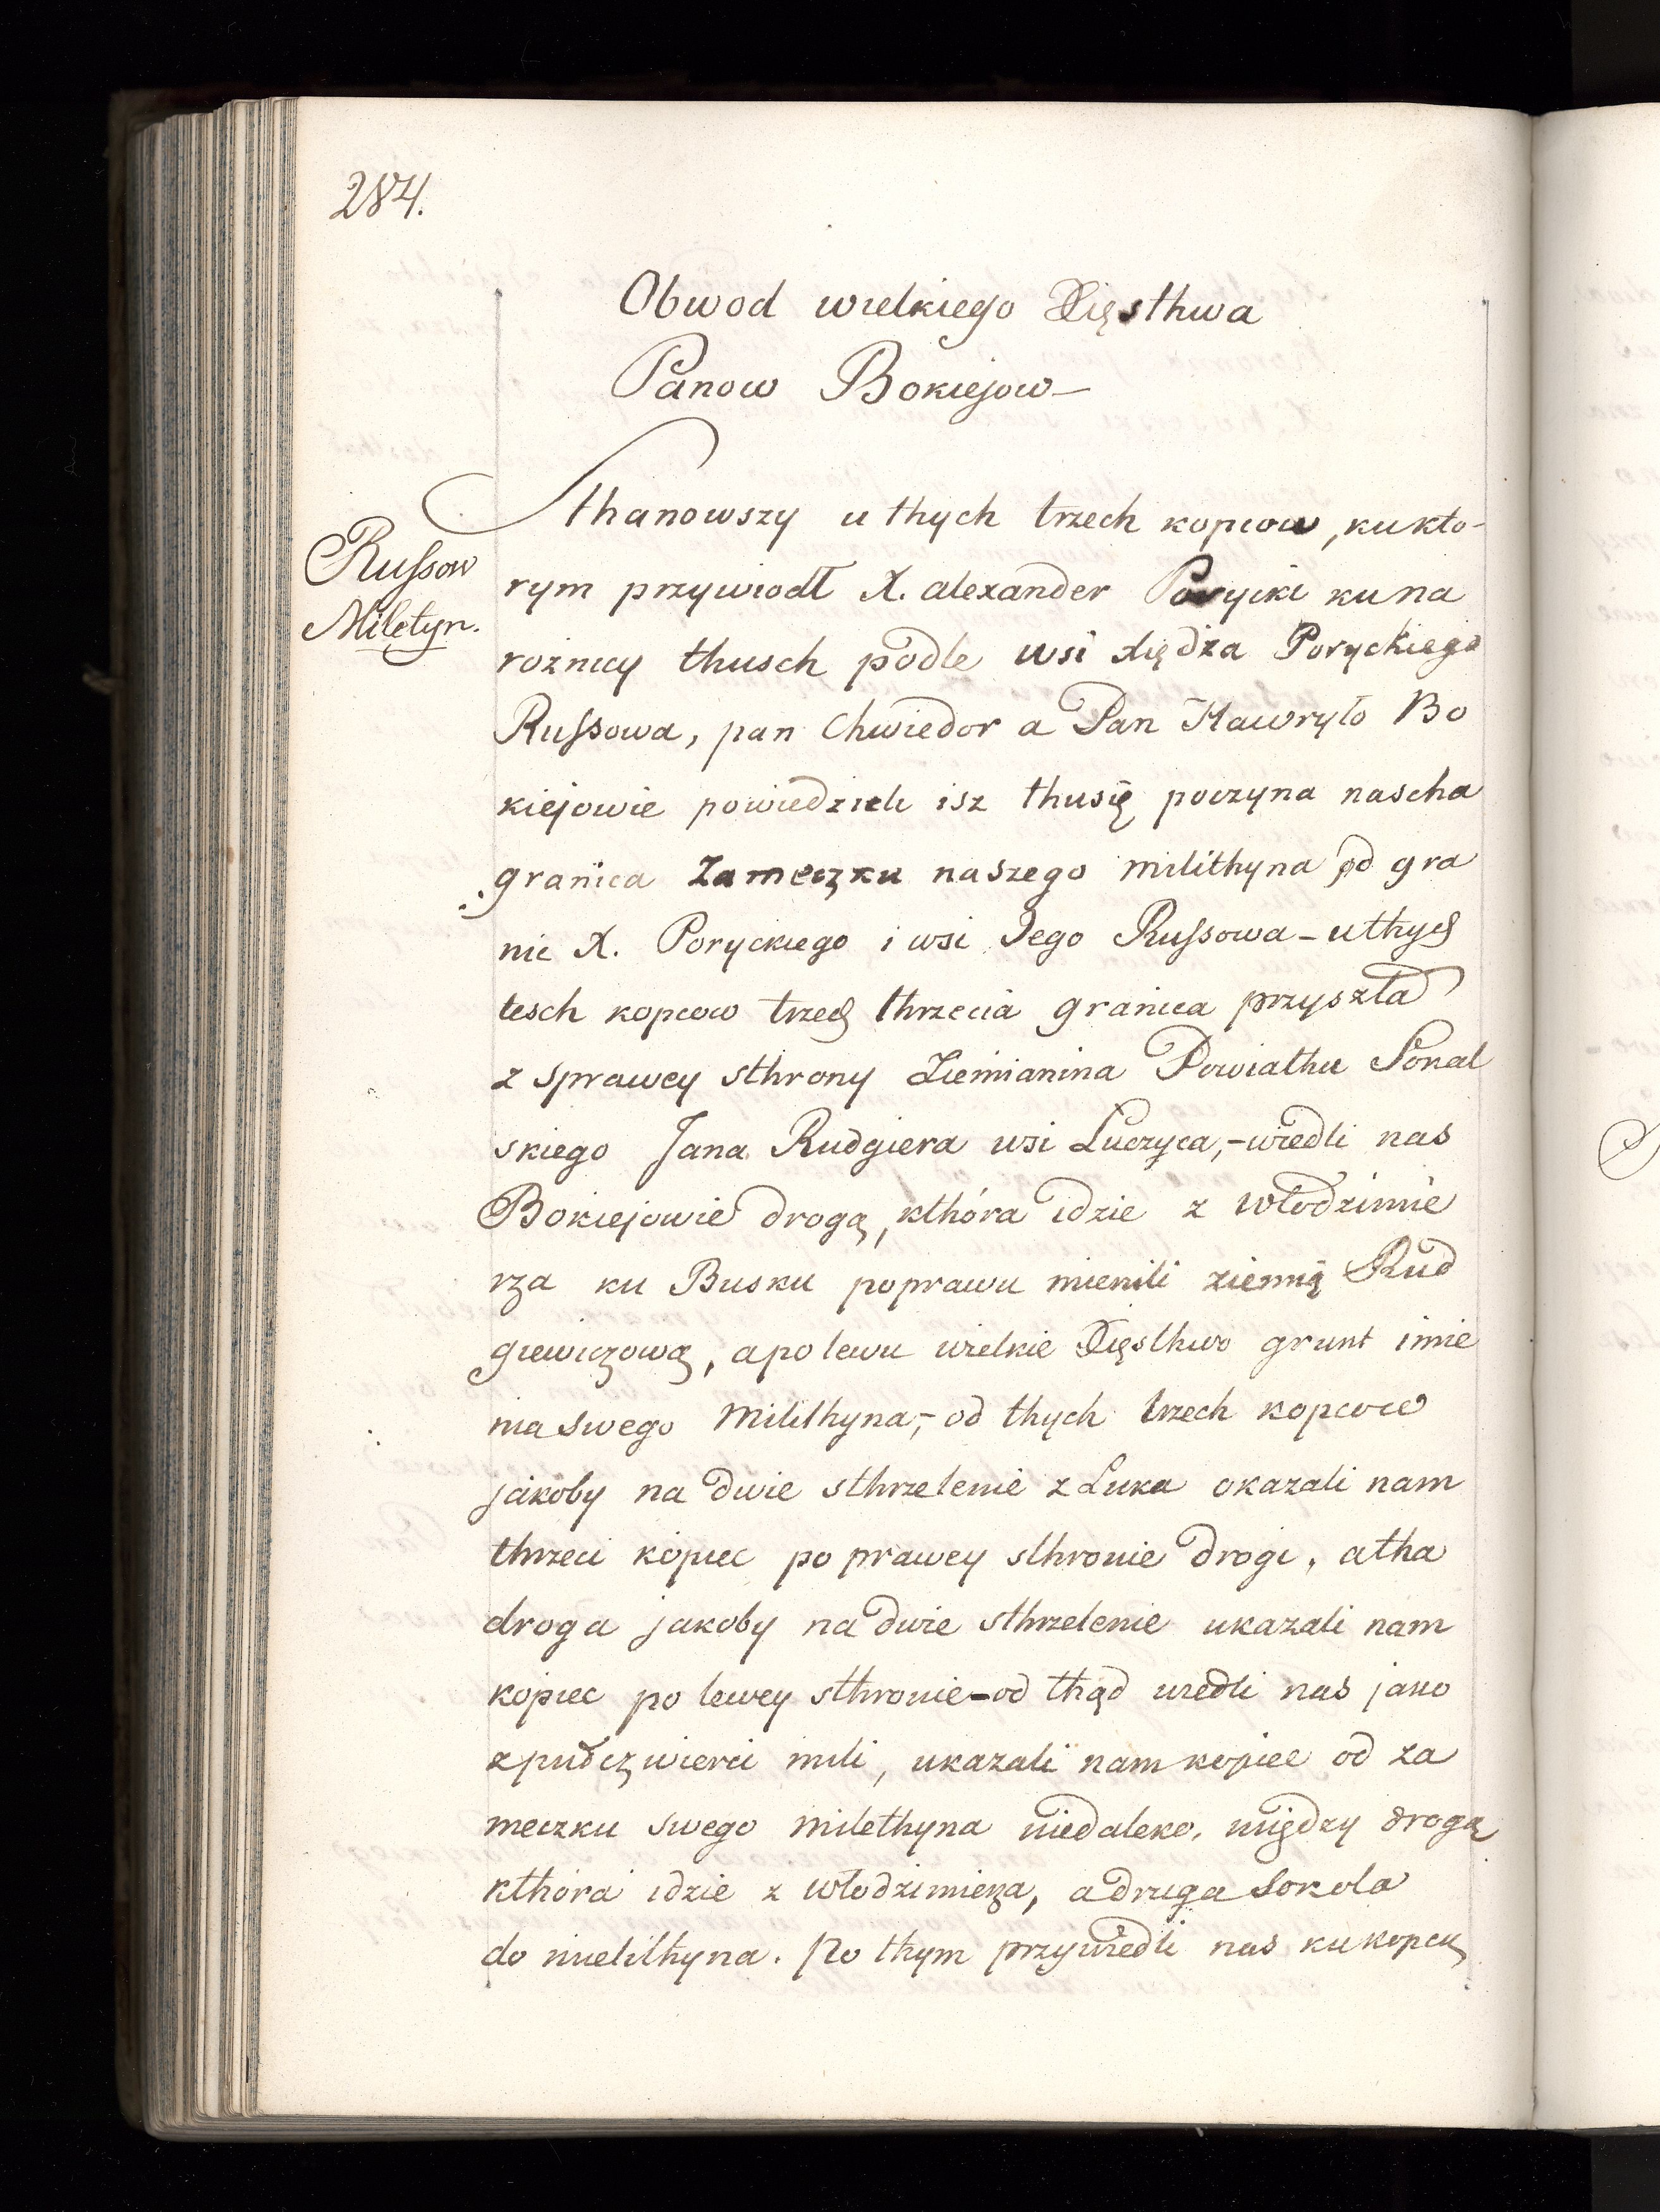 284.
Obwod wielkiego Xięsthwa
Panow Bokiejow
Russow
Miletyn.
Sthanowszy u thych trzech kopcow, ku kto-
rym przywiodł X. alexander Porycki ku na
roznicy thusch podle wsi xiędza Poryckiego
Russowa, pan Chwiedor a Pan Hawryło Bo
kiejowie powiedzieli isz thusię poczyna nascha
granica Zameczku naszego milithyna od gra
nic X. Poryckiego i wsi Jego Russowa - u thych
tesch kopcow trzech thrzecia granica przyszła
z sprawey sthrony Ziemianina Powiathu Sokal
skiego Jana Rudgiera wsi Łuczyca, - wiedli nas
Bokiejowie drogą, kthóra idzie z włodzimie
rza ku Busku poprawu mienili ziemię Rud
giewiczową, a po lewu wielkie Xięsthwo grunt imie
nia swego Milithyna, - od thych trzech kopcow
jakoby na dwie sthrzelenie z Łuka okazali nam
thrzeci kopiec po prawey sthronie drogi, a tha
droga jakoby na dwie sthrzelenie ukazali nam
kopiec po lewey sthronie - od thąd wiedli nas jako
z pułczwierci mili, ukazali nam kopiec od za
meczku swego milethyna niedaleko, między drogą
kthora idzie z włodzimierza, a druga Sokola
do mielithyna. Po thym przywiedli nas ku kopcu